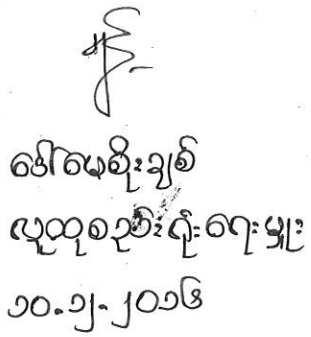 ဒေါ်မေစိုးချစ်
လူထုစည်းရုံးရေးမှူး
၁၀.၁၂.၂၀၁၆